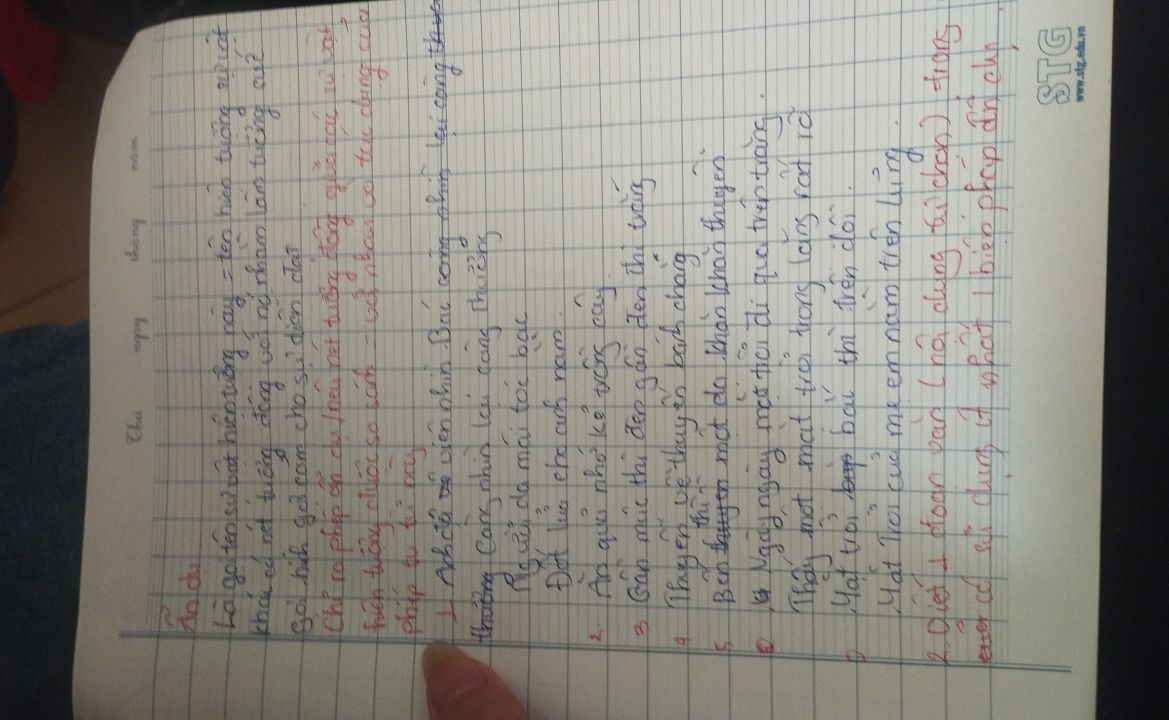 Thứ ngày tháng năm
Ẩn dụ
Là gọi tên sự vật hiện tượng này = tên hiện tượng sự vật
khác có nét tương đồng với nó nhằm làm tăng sức
gợi hình gợi cảm cho sự diễn đạt
Chỉ ra phép ẩn dụ, nêu nét tương đồng giữa các sự vật
hiện tượng được so sánh với nhau và tác dụng của
phép tu từ này
1 Anh đội viên nhìn Bác càng nhìn lại càng
thương Càng nhìn lại càng thương
Người cha mái tóc bạc
Đốt lửa cho anh nằm.
2. Ăn quả nhớ kẻ trồng cây
3 Gần mực thì đen gần đèn thì sáng
4 Thuyền về thuyền bánh chăng
5 Bến thì một dạ khăn khăn thuyền
6 Ngày ngày mặt trời đi qua trên trăng.
Thấy một mặt trời trong lăng rất rõ
Mặt trời bắp thì trên đồi.
Mặt Trời của mẹ em nằm trên lưng.
2. Viết 1 đoạn văn (nội dung tự chọn) trong
có sử dụng ít nhất 1 biện pháp ẩn dụ
STG
www.stg.edu.vn